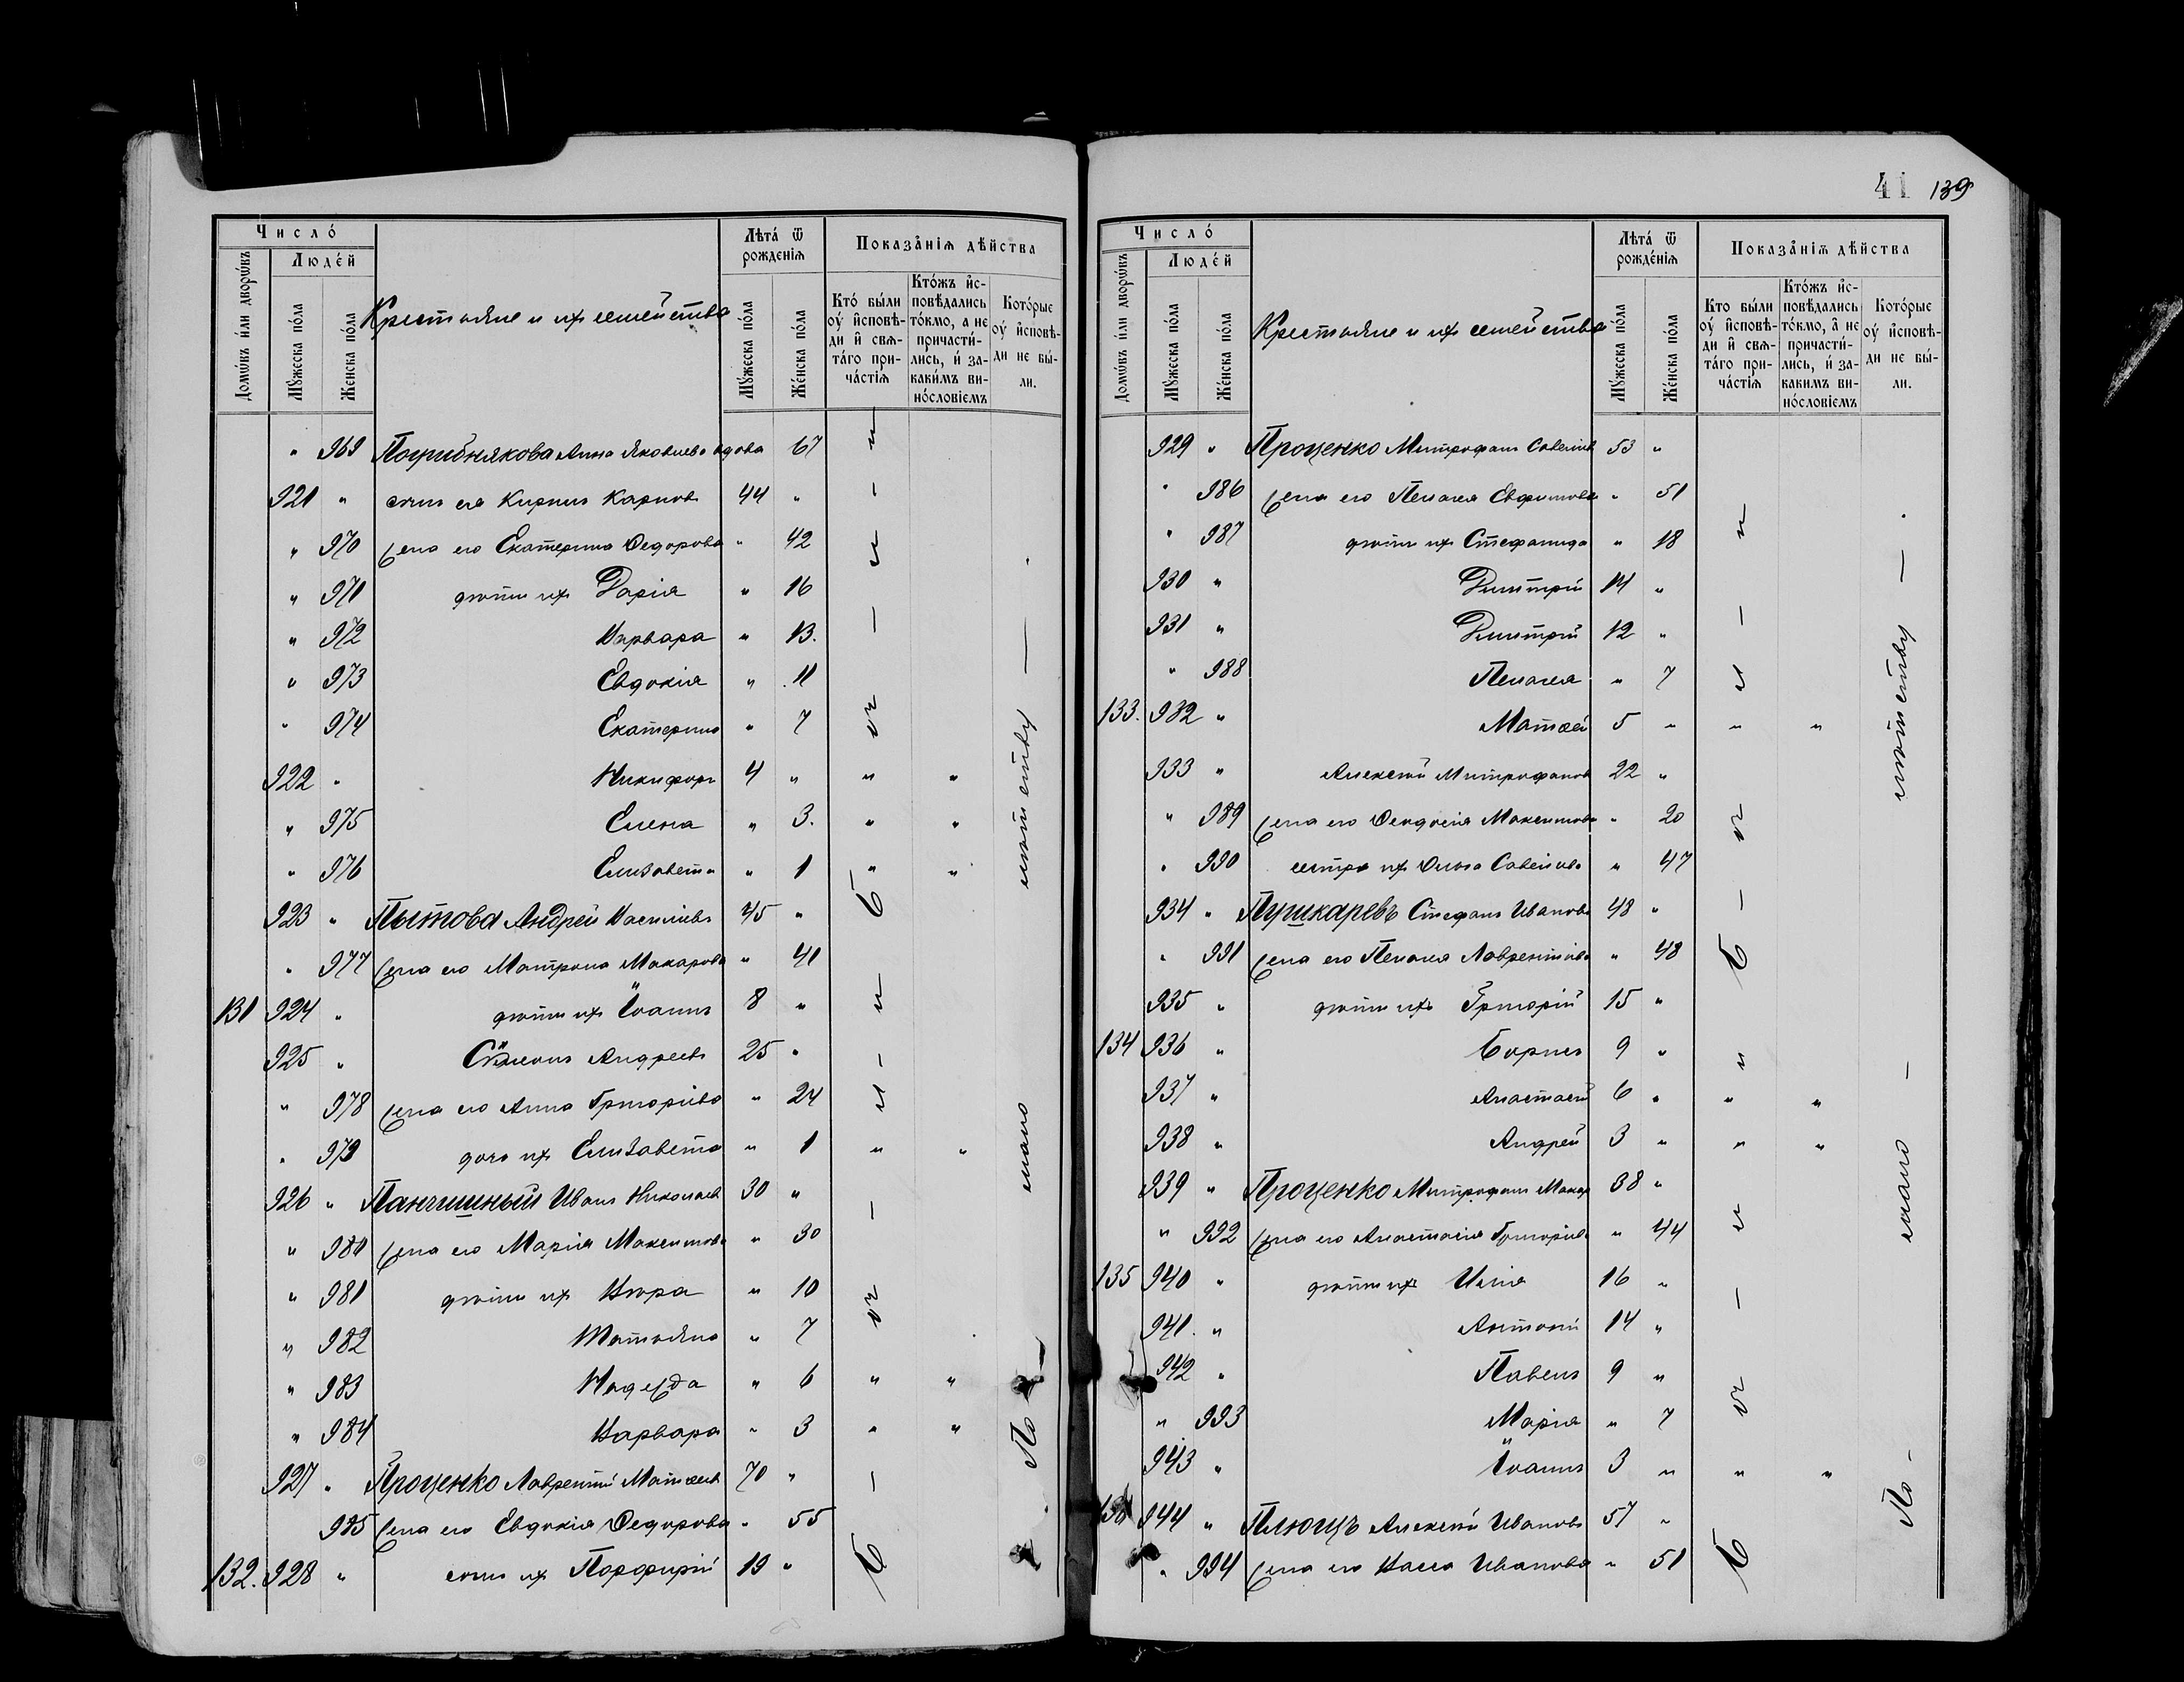 Число́
Домѡ́въ и́ли дворѡ́въ
Люде́й
Мꙋ́жеска по́ла
Же́нска по́ла
Крестьяне и их семейства
Лѣта́ ѿ рожде́нїѧ
Мꙋ́жеска по́ла
Же́нска по́ла
Показа́нїѧ дѣ́йства
Кто́ бы́ли оу҆ и҆сповѣ-ди и҆ свѧ-та́го при-ча́стїѧ
Кто́жъ и҆с-повѣ́дались то́кмо, а не причасти́-лись, и҆ за-каки́мъ ви-но́словїемъ
Кото́рые оу҆ и҆сповѣ-ди не бы́-ли.
" 969 Анна Яковлева вдова 67
921 " сынъ ея Кирилъ Карповъ 44 "
" 970 жена его Екатерина Федорова " 42
" 971 дѣти их Дарія " 16
" 972 Варвара " 13.
" 973 Евдокія " 11
" 974 Екатерина " 7
922 " Никифоръ 4 " " "
" 975 Елена " 3. " "
" 976 Елизавета " 1 " "
923 " Андрей Василіевъ 45 "
" 977 жена его Матрона Макарова " 41
131 924 " дѣти их Іоаннъ 8 "
925 " Симеонъ Андреевъ 25 "
" 978 жена его Анна Григоріева " 24
" 979 дочь их Елизавета " 1 " "
926 " Иванъ Николаев 30 "
" 980 жена его Марія Максимова " 30
" 981 дѣти их " 10
" 982 Татьяна " 7
" 983 Надежда " 6 " "
" 984 Варвара " 3 " "
927 " Проценко Лаврентій Матвеев 70 "
985 жена его Евдокія Федорова " 55
132. 928 " сынъ их Порфирій 19 "
Были
По мало лѣтству
41 139
Число́
Домѡ́въ и́ли дворѡ́въ
Люде́й
Мꙋ́жеска по́ла
Же́нска по́ла
Крестьяне и их семейства
Лѣта́ ѿ рожде́нїѧ
Мꙋ́жеска по́ла
Же́нска по́ла
Показа́нїѧ дѣ́йства
Кто бы́ли оу҆ и҆сповѣ-ди и҆ свѧ-та́го при-ча́стїѧ
Кто́жъ и҆с-повѣ́дались то́кмо, а҆ не причасти́-лись, и҆ за-каки́мъ ви-но́словїемъ
Кото́рые оу҆ и҆сповѣ-ди не бы́-ли.
929 " Проценко Митрофанъ Савеліев 53 "
" 986 жена его Пелагея Евфимова " 51
" 987 дѣти их Стефанида " 18
930 " Димитрій 14 "
931 " Димитрій 12 "
" 988 Пелагея " 7
133. 932 " Матвей 5 " " "
933 " Алексѣй Митрофанов 22 "
" 989 жена его Феодосія Максимова " 20
" 990 сестра их Савеліева " 47
934 " Пушкаревъ Стефанъ Иванов 48 "
" 991 жена его Пелагея Лаврентіева " 48
935 " дѣти их Григорій 15 "
134 936 " Борисъ 9 "
937 " Анастасій 6 " " "
938 " Андрей 3 " " "
939 " Проценко Митрофанъ Макар 38 "
" 992 жена его Анастасія Григоріев " 44
135 940 " дѣти их Илія 16 "
941. " Антоній 14 "
942 " Павелъ 9 "
" 993 Марія " 7
943 " Іоаннъ 3 " " "
944 " Алексѣй Ивановъ 57 "
" 994 жена его Васса Иванова " 51
Были
По мало лѣтству